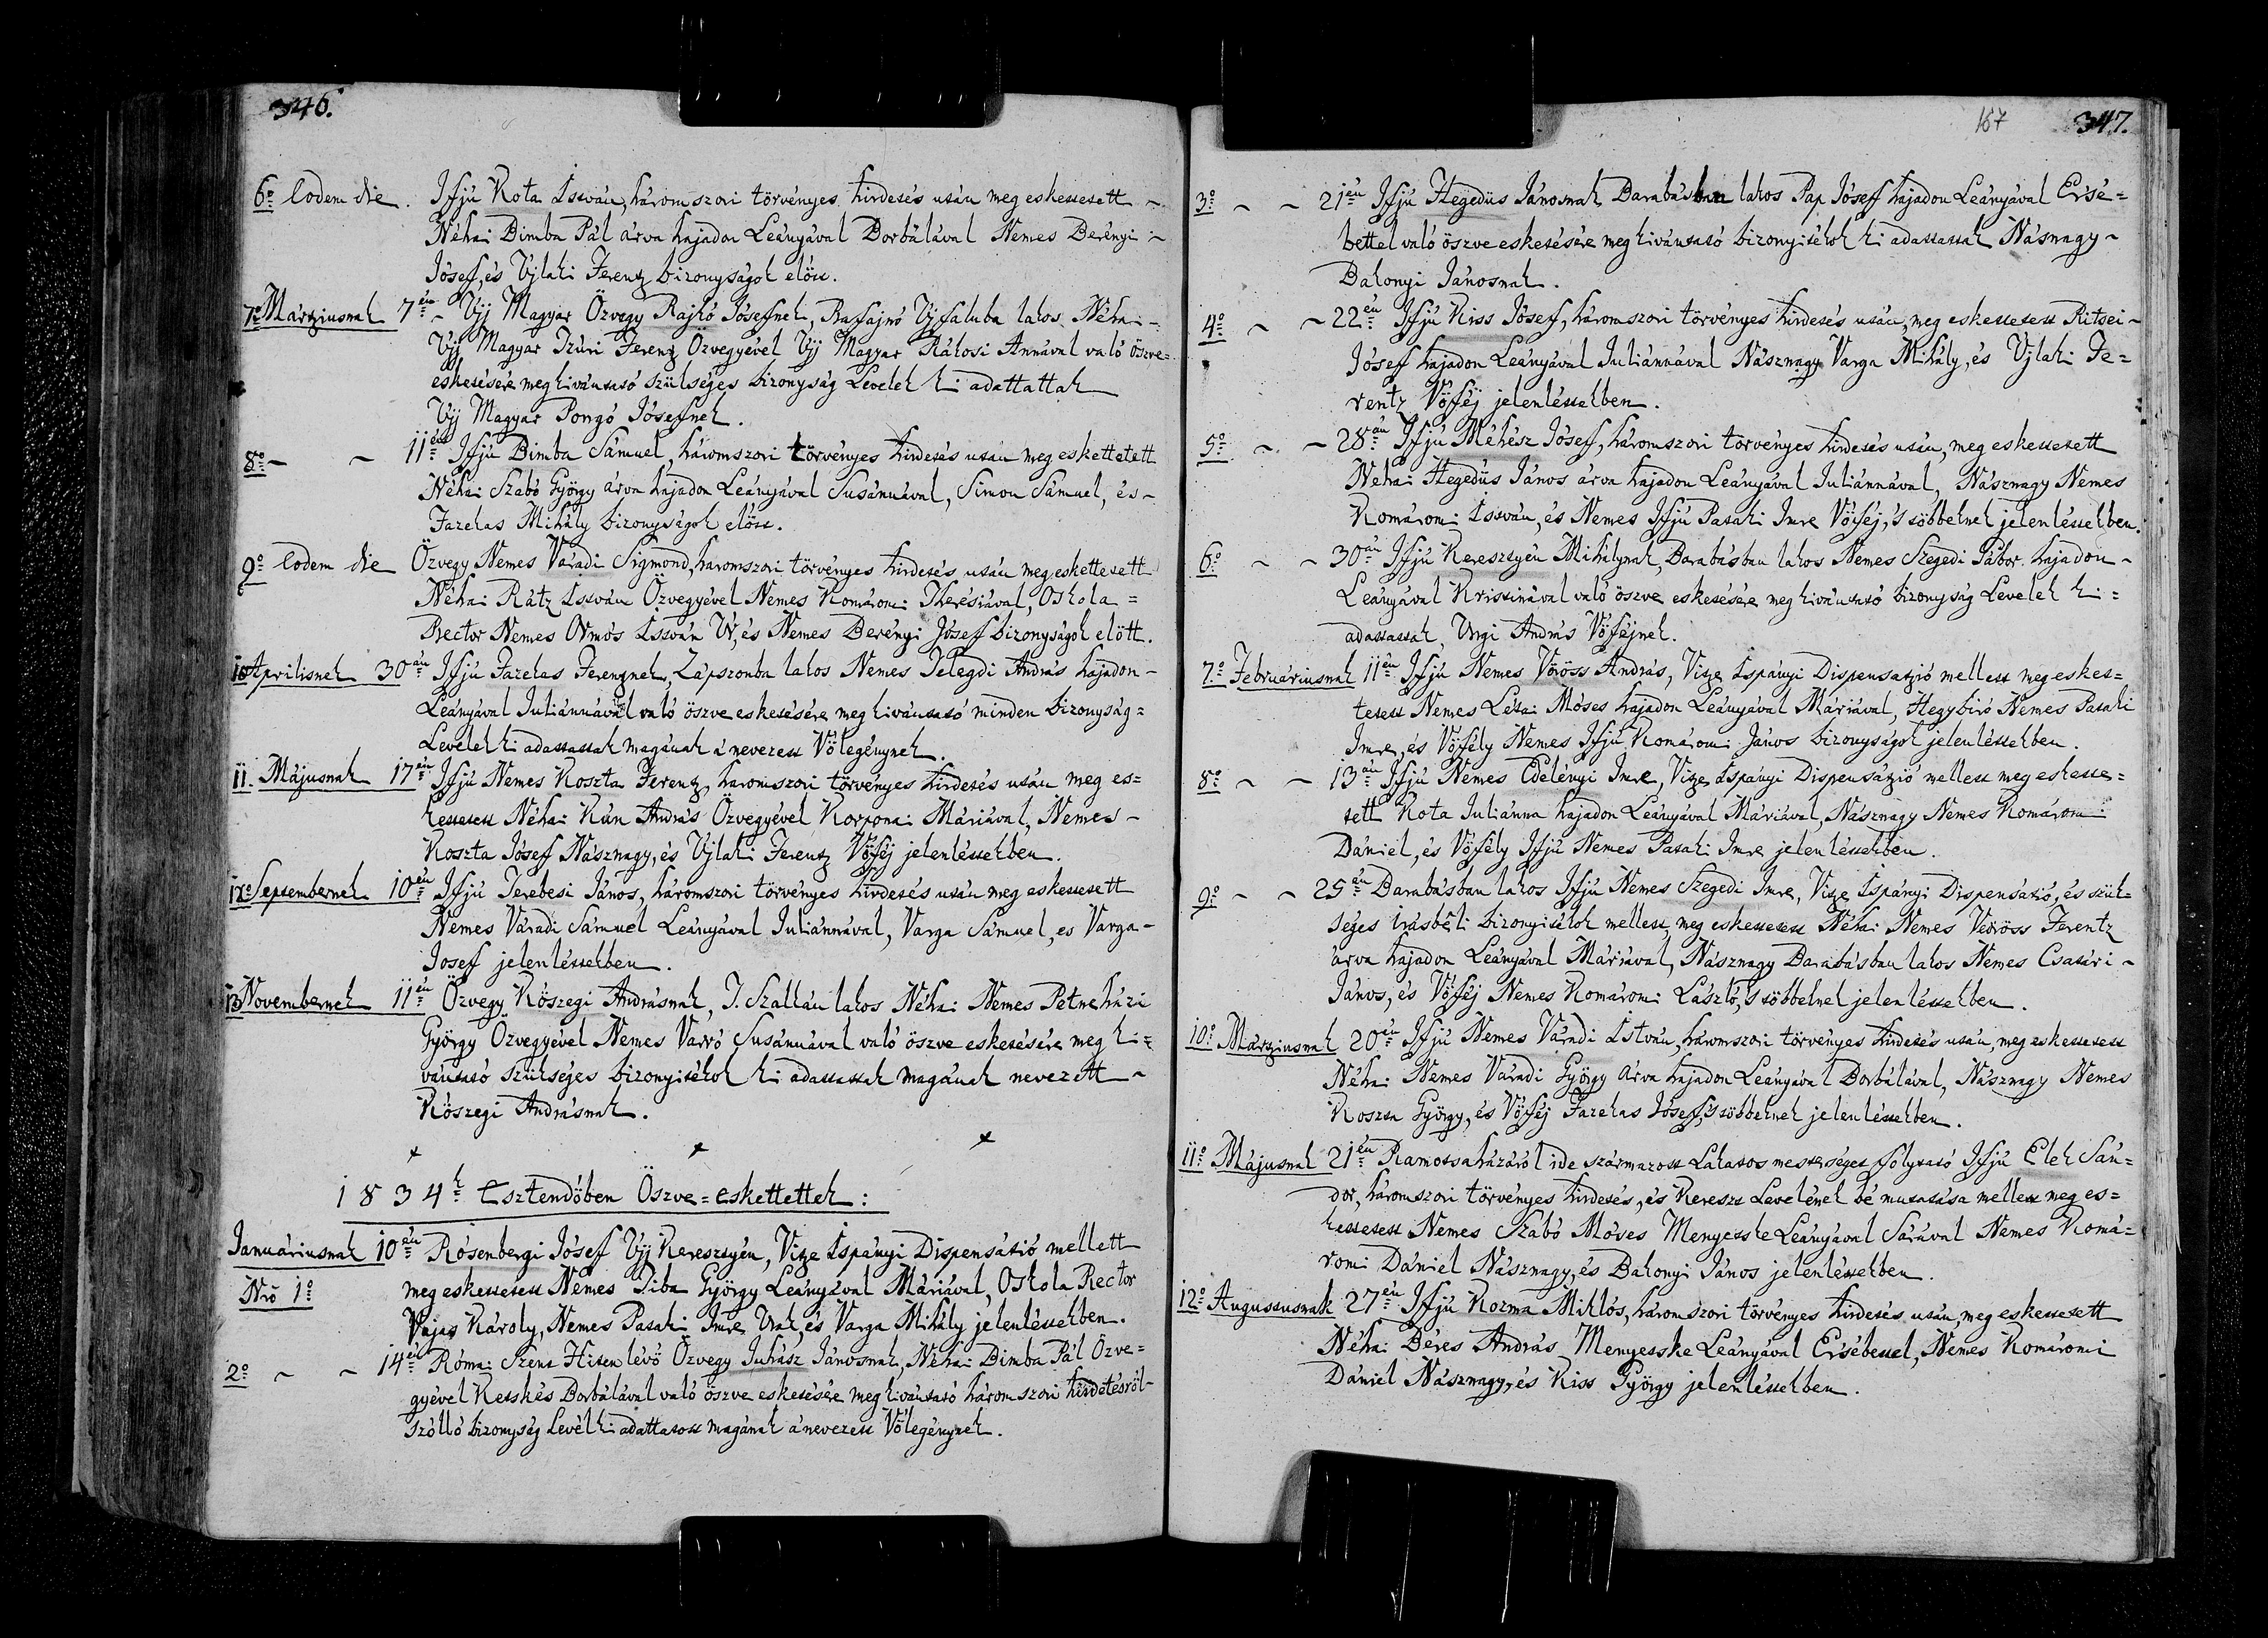 346.
6º Eodem die. Ifjú Kota István, háromszori törvényes hirdetés után meg eskettetett ~
Néhai Bimba Pál árva hajadon Leányával Borbálával Nemes Berényi ~
Jósef, és Ujlaki Ferentz bizonyságok elött.
7º Mártziusnak 7én ~ Ujj Magyar Özvegy Rajkó Jósefnek, Bafajnó Ujfaluba lakos Néhai ~
Ujj Magyar Izúri Ferentz Özvegyével Ujj Magyar Rákosi Annával való öszve=
esketésére megkivántató szükséges bizonyság Levelek ki adattattak
Ujj Magyar Pongó Jósefnek.
8º ~ ~ 11én Ifjú Bimba Sámuel, háromszori törvényes hirdetés után meg eskettetett
Néhai Szabó György árva hajadon Leányával Susánnával, Simon Sámuel, és ~
Fazekas Mihály bizonyságok elött.
9º Eodem die Özvegy Nemes Váradi Sigmond, háromszori törvényes hirdetés után meg eskettetett
Néhai Rátz István Özvegyével Nemes Komáromi Therésiával, Oskola =
Rector Nemes Olmós István Ur, és Nemes Berényi Jósef bizonyságok elött.
10º Aprilisnek 30án Ifju Fazekas Ferentznek, Zápszonba lakos Nemes Telegdi András hajadon ~
Leányával Juliánnával való öszve esketésére meg kivántató minden bizonyság =
Levelek ki adattattak magának á nevezett Völegénynek.
11. Májusnak 17én Ifjú Nemes Koszta Ferentz, háromszori törvényes hirdetés után meg es=
kettetett Néhai Kún András Özvegyével Korponai Máriával, Nemes ~
Koszta Jósef Násznagy, és Ujlaki Ferentz Vöféj jelenlétekben.
12º Septembernek 10én Ifjú Terebesi János, háromszori törvényes hirdetés után meg eskettetett
Nemes Váradi Sámuel Leányával Juliánnával, Varga Sámuel, es Varga ~
Josef jelenlétekben.
13 Novembernek 11én Özvegy Köszegi Andrásnak, T. Szallán lakos Néhai Nemes Petneházi
György Özvegyével Nemes Varró Susánnával való öszve esketésére meg ki=
vántató szükséges bizonyitékok ki adattattak magának nevezett ~
Köszegi Andrásnak.
1834k Esztendöben Öszve=eskettettek:
Januáriusnak 10án Rósenbergi Jósef Ujj Keresztyén, Vitze Ispányi Dispensátió mellett
Nrō 1º meg eskettetett Nemes Tiba György Leányával Máriával, Oskola Rector
Vajas Károly, Nemes Pataki Imre Urak, és Varga Mihály jelenlétekben.
2º ~ ~ 14én Római Szent Hiten lévö Özvegy Juhász Jánosnak, Néhai Bimba Pál Özve=
gyével Ketskés Borbálával való öszve esketésére meg kivántató háromszori hirdetésröl
szólló bizonyság Levél ki adattatott magának á nevezett Völegénynek.
167 347.
3º ~ ~ 21én Ifjú Hegedüs Jánosnak, Barabásban lakos Pap Jósef hajadon Leányával Ersé=
bettel való öszve esketésére meg kivántató bizonyitékok ki adattattak Násznagy ~
Bakonyi Jánosnak.
4º ~ ~ 22én Ifjú Kiss Jósef, háromszori törvényes hirdetés után, meg eskettetett Ritsei ~
Jósef hajadon Leányával Juliánnával Násznagy Varga Mihály, és Ujlaki Fe=
rentz Vöféj jelenlétekben.
5º ~ ~ 28án Ifjú Méhész Jósef, háromszori törvényes hirdetés után, meg eskettetett
Néhai Hegedüs János árva hajadon Leányával Juliánnával, Násznagy Nemes
Komáromi István, és Nemes Ifjú Pataki Imre Vöféj, 's többeknek jelenlétekben.
6º ~ ~ 30án Ifjú Keresztyén Mihálynak, Barabásban lakos Nemes Szegedi Gábor hajadon ~
Leányával Kristinával való öszve esketésére meg kivántató bizonyság Levelek ki =
adattattak, Urgi András Vöféjnek.
7º Februáriusnak 11én Ifjú Nemes Vöröss András, Vitze Ispányi Dispensatzió mellett meg esket=
tetett Nemes Létai Móses hajadon Leányával Máriával, Hegybiró Nemes Pataki
Imre, és Vöfély Nemes Ifjú Komáromi János bizonyságok jelenlétekben.
8º ~ ~ 13án Ifjú Nemes Edelényi Imre, Vitze Ispányi Dispensátzió mellett meg eskette=
tett Kota Juliánna hajadon Leányával Máriával, Násznagy Nemes Komáromi
Dániel, és Vöfély Ifjú Nemes Pataki Imre jelenlétekben.
9º ~ ~ 25én Barabásban lakos Ifjú Nemes Szegedi Imre, Vitze Ispányi Dispensátió, és szük=
séges irásbéli bizonyitékok mellett, meg eskettetett Néhai Nemes Veöröss Ferentz
árva hajadon Leányával Máriával, Násznagy Barabásban lakos Nemes Csatári ~
János, és Vöféj Nemes Komáromi László, 's többeknek jelenlétekben.
10º Mártziusnak 20án Ifjú Nemes Váradi István, háromszori törvényes hirdetés után, meg eskettetett
Néhai Nemes Váradi György árva hajadon Leányával Borbálával, Násznagy Nemes
Koszta György, és Vöféj Fazekas Jósef, 's többeknek jelenlétekben.
11º Májusnak 21én Ramotsaházáról ide származott Lakatos mesterséget folytató Ifjú Elek Sán=
dor, háromszori törvényes hirdetés, és Kereszt Levelének bé mutatása mellett meg es=
kettetett Nemes Szabó Móses Menyetske Leányával Sárával Nemes Komá=
romi Dániel Násznagy, és Bakonyi János jelenlétekben.
12º Augustusnak 27én Ifjú Kozma Miklós, háromszori törvényes hirdetés után, meg eskettetett
Néhai Béres András Menyetske Leányával Ersébettel, Nemes Komáromi
Dániel Násznagy, és Kiss György jelenlétekben.